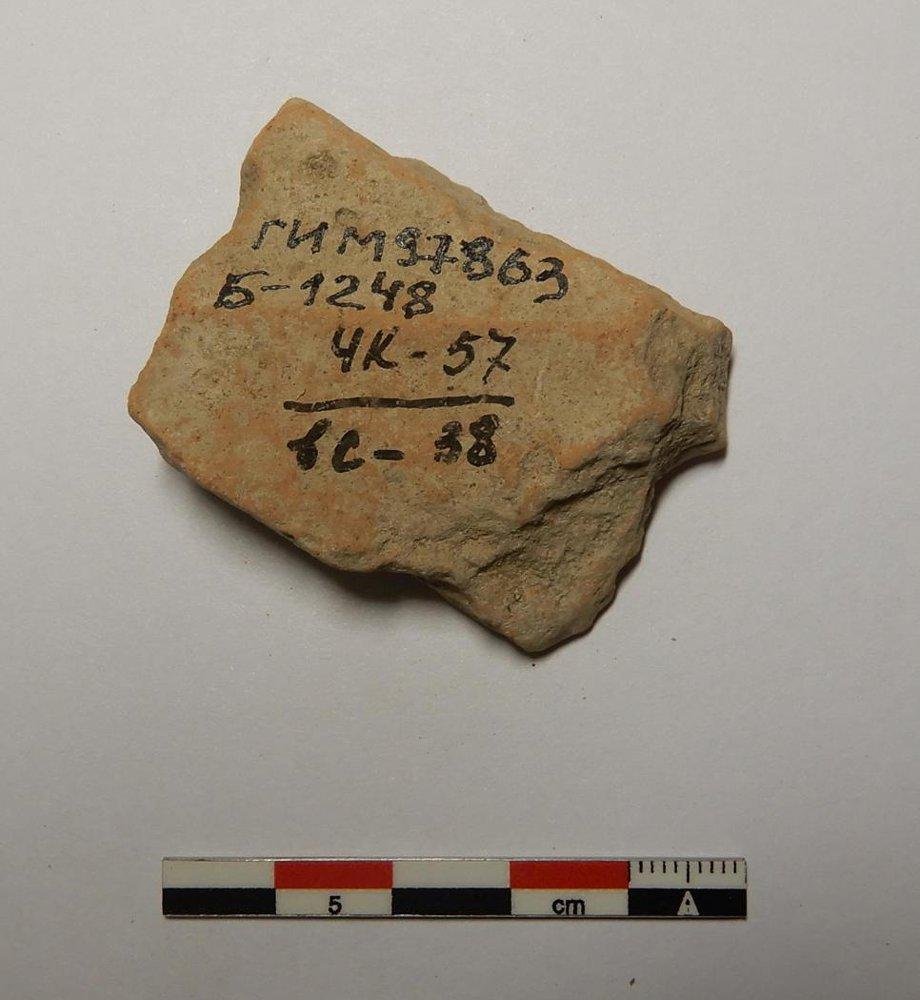 ГИМ97863
Б-1248
ЧК-57
ВС-38
5 cm